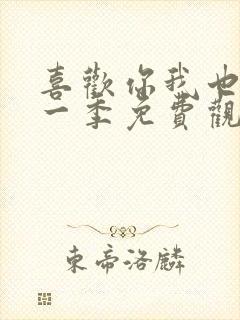 喜歡你我也
一季免費觀
東帝洛麟